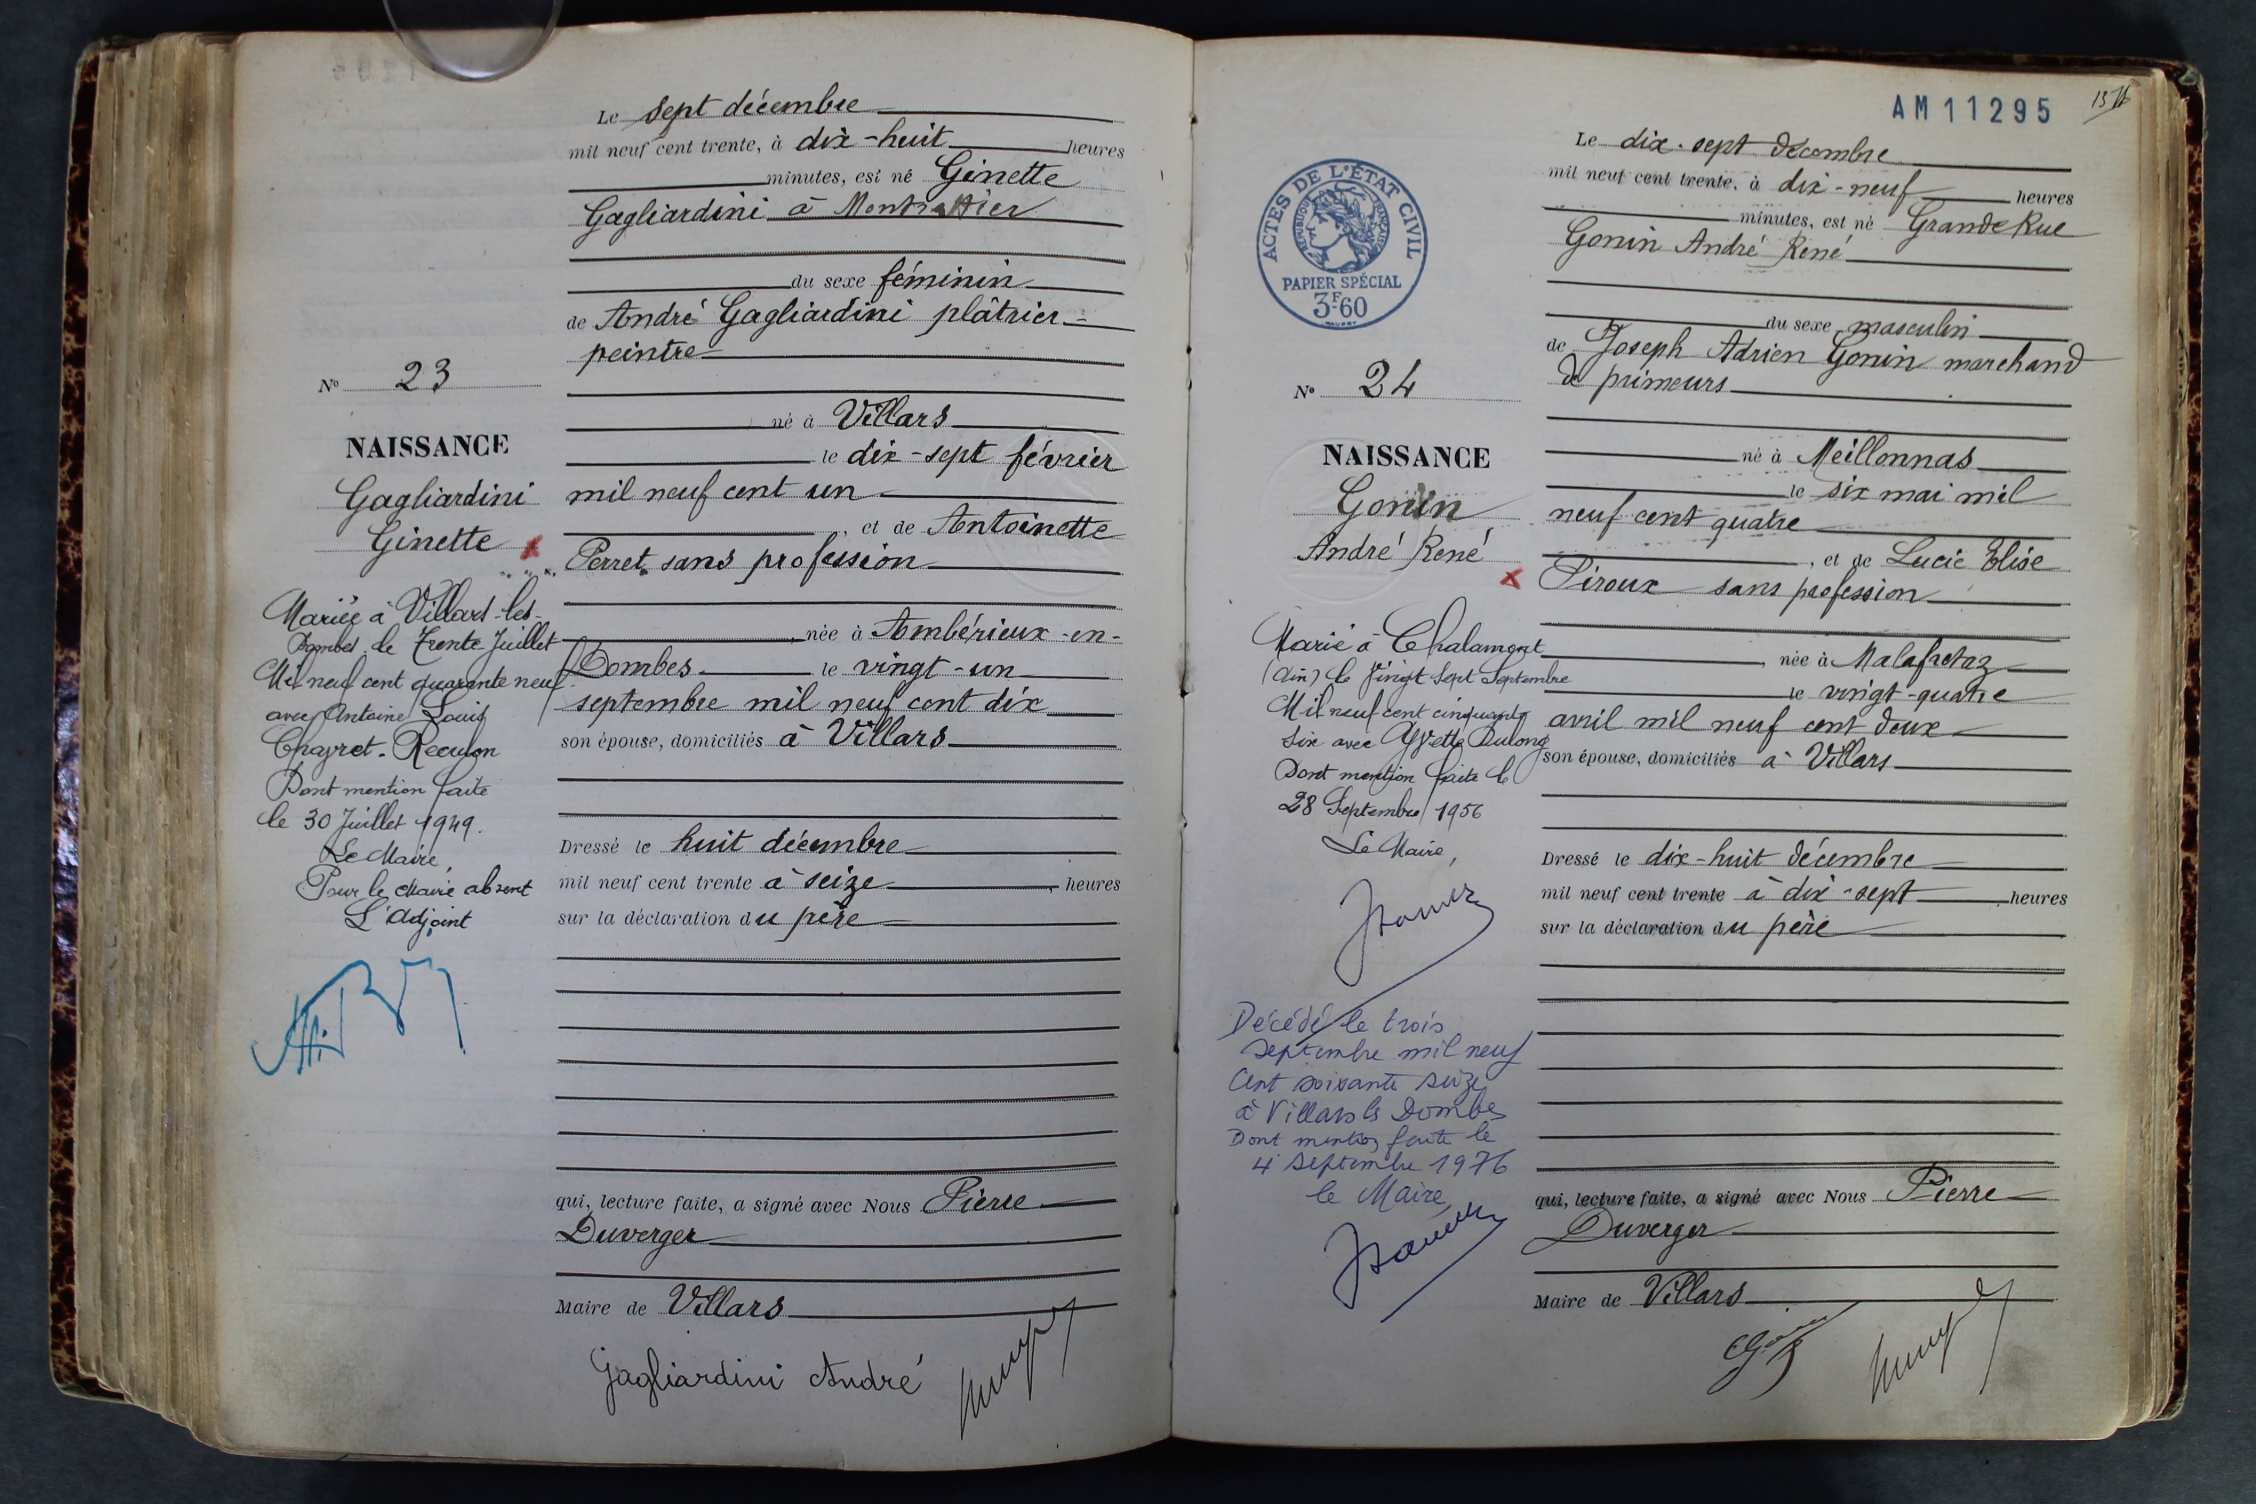 Le sept décembre
mil neuf cent trente, à dix-huit heures
minutes, est né Ginette
Gagliardini à Montrattier
du sexe féminin
de André Gagliardini plâtrier-
peintre
né à Villars
le dix-sept février
mil neuf cent un
, et de Antoinette
Perret sans profession
, née à Ambérieux-en-
Dombes le vingt-un
septembre mil neuf cent dix
son épouse, domiciliés à Villars
Dressé le huit décembre
mil neuf cent trente à seize , heures
sur la déclaration du père
qui, lecture faite, a signé avec Nous Pierre
Duverger
Maire de Villars
Gagliardini André
N° 23
NAISSANCE
Gagliardini
Ginette x
Mariée à Villars-les-
Dombes le trente Juillet
Mil neuf cent quarante neuf
avec Antoine Louis
Chayret-Reculon
Dont mention faite
le 30 Juillet 1949.
Le Maire,
Pour le Maire absent
L'Adjoint
AM11295
Le dix-sept décembre
mil neuf cent trente, à dix-neuf heures
minutes, est né Grande Rue
Gonin André René
du sexe masculin
de Joseph Adrien Gonin marchand
de primeurs
né à Meillonnas
le six mai mil
neuf cent quatre
, et de Lucie Elise
Piroux sans profession
, née à Malafretaz
le vingt-quatre
avril mil neuf cent deux
son épouse, domiciliés à Villars
Dressé le dix-huit décembre
mil neuf cent trente à dix-sept , heures
sur la déclaration du père
qui, lecture faite, a signé avec Nous Pierre
Duverger
Maire de Villars
ACTES DE L'ÉTAT CIVIL
RÉPUBLIQUE FRANÇAISE
PAPIER SPÉCIAL
3F60
N° 24
NAISSANCE
Gonin
André René
x
Marié à Chalamont
(Ain) le Vingt Sept Septembre
Mil neuf cent cinquante
six avec Yvette Dulong
Dont mention faite le
28 Septembre 1956
Le Maire,
Décédé le trois
septembre mil neuf
cent soixante seize
à Villars les Dombes
Dont mention faite le
4 septembre 1976
le Maire